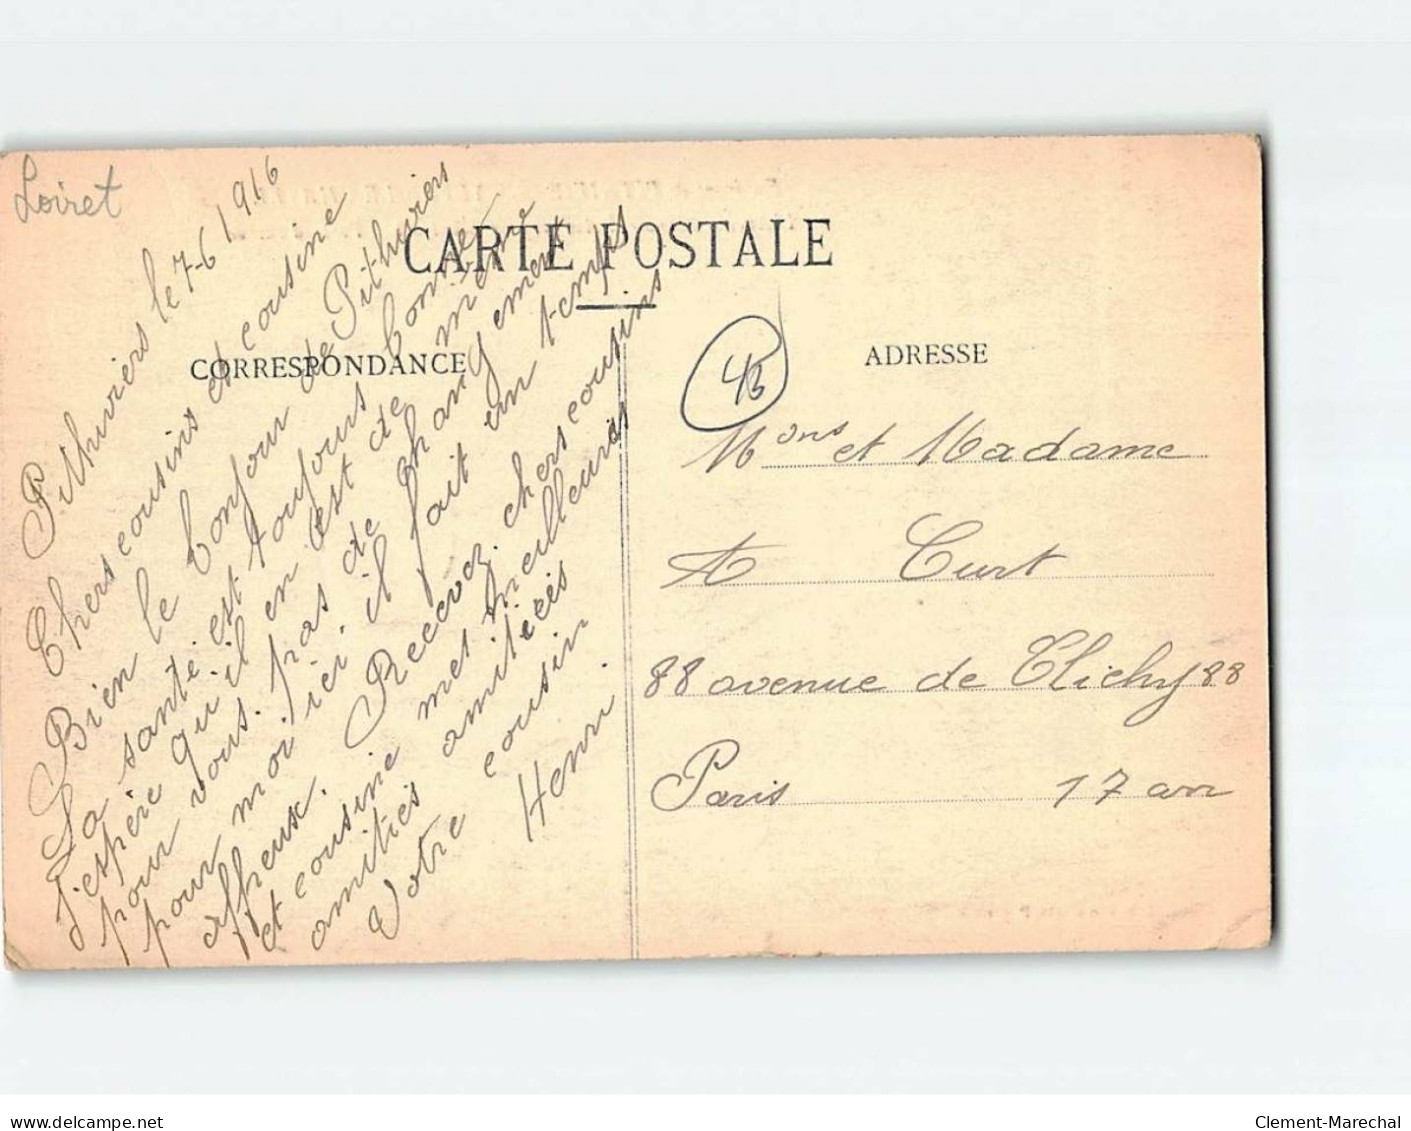 Loiret
CARTE POSTALE
CORRESPONDANCE
ADRESSE
Pithiviers le 7-6 1916
Chers cousins et cousine
Bien le bonjour de Pithiviers
La santé est toujours bonne
j'espère qu'il en est de même
pour vous. pas de changement
pour moi ici, il fait un temps
affreux. Recevez chers cousins
et cousine mes meilleures
amitiés
Votre cousin
Henri.
Mons et Madame
A Curt
88 avenue de Clichy 88
Paris 17 arr
delcampe.net
Clement-Marechal